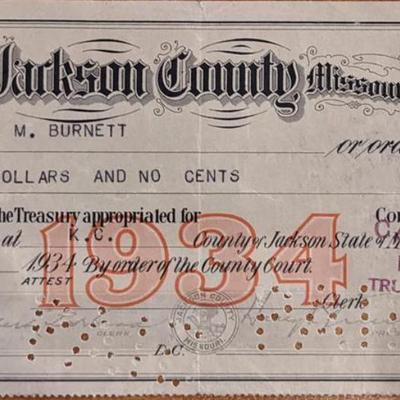 Jackson County Missou
M. BURNETT
or/ord
OLLARS AND NO CENTS
the Treasury appropriated for Con
at K.C. County of Jackson State of M
1934
1934 By order of the County Court.
TRU
ATTEST Clerk
JACKSON COUNTY
MISSOURI
CLERK
D.C.